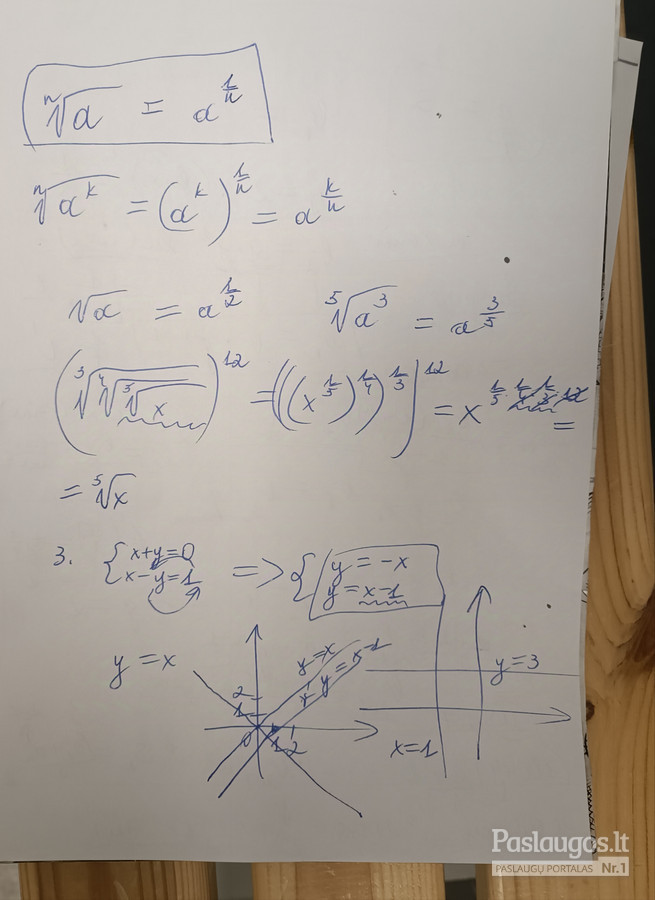 ⁿ√a = a^(1/n)
ⁿ√a^k = (a^k)^(1/n) = a^(k/n)
√a = a^(1/2) ⁵√a³ = a^(3/5)
(³√⁴√³√x)^12 = (((x^(1/5))^(1/4))^(1/3))^12 = x^(1/5·1/4·1/3·12) =
= ⁵√x
3. {x+y=0 x-y=1 => {y=-x y=x-1
y=x
y=x y=x-1
2
1
0 1 2
y=3
x=1
Paslaugos.lt
PASLAUGŲ PORTALAS Nr.1